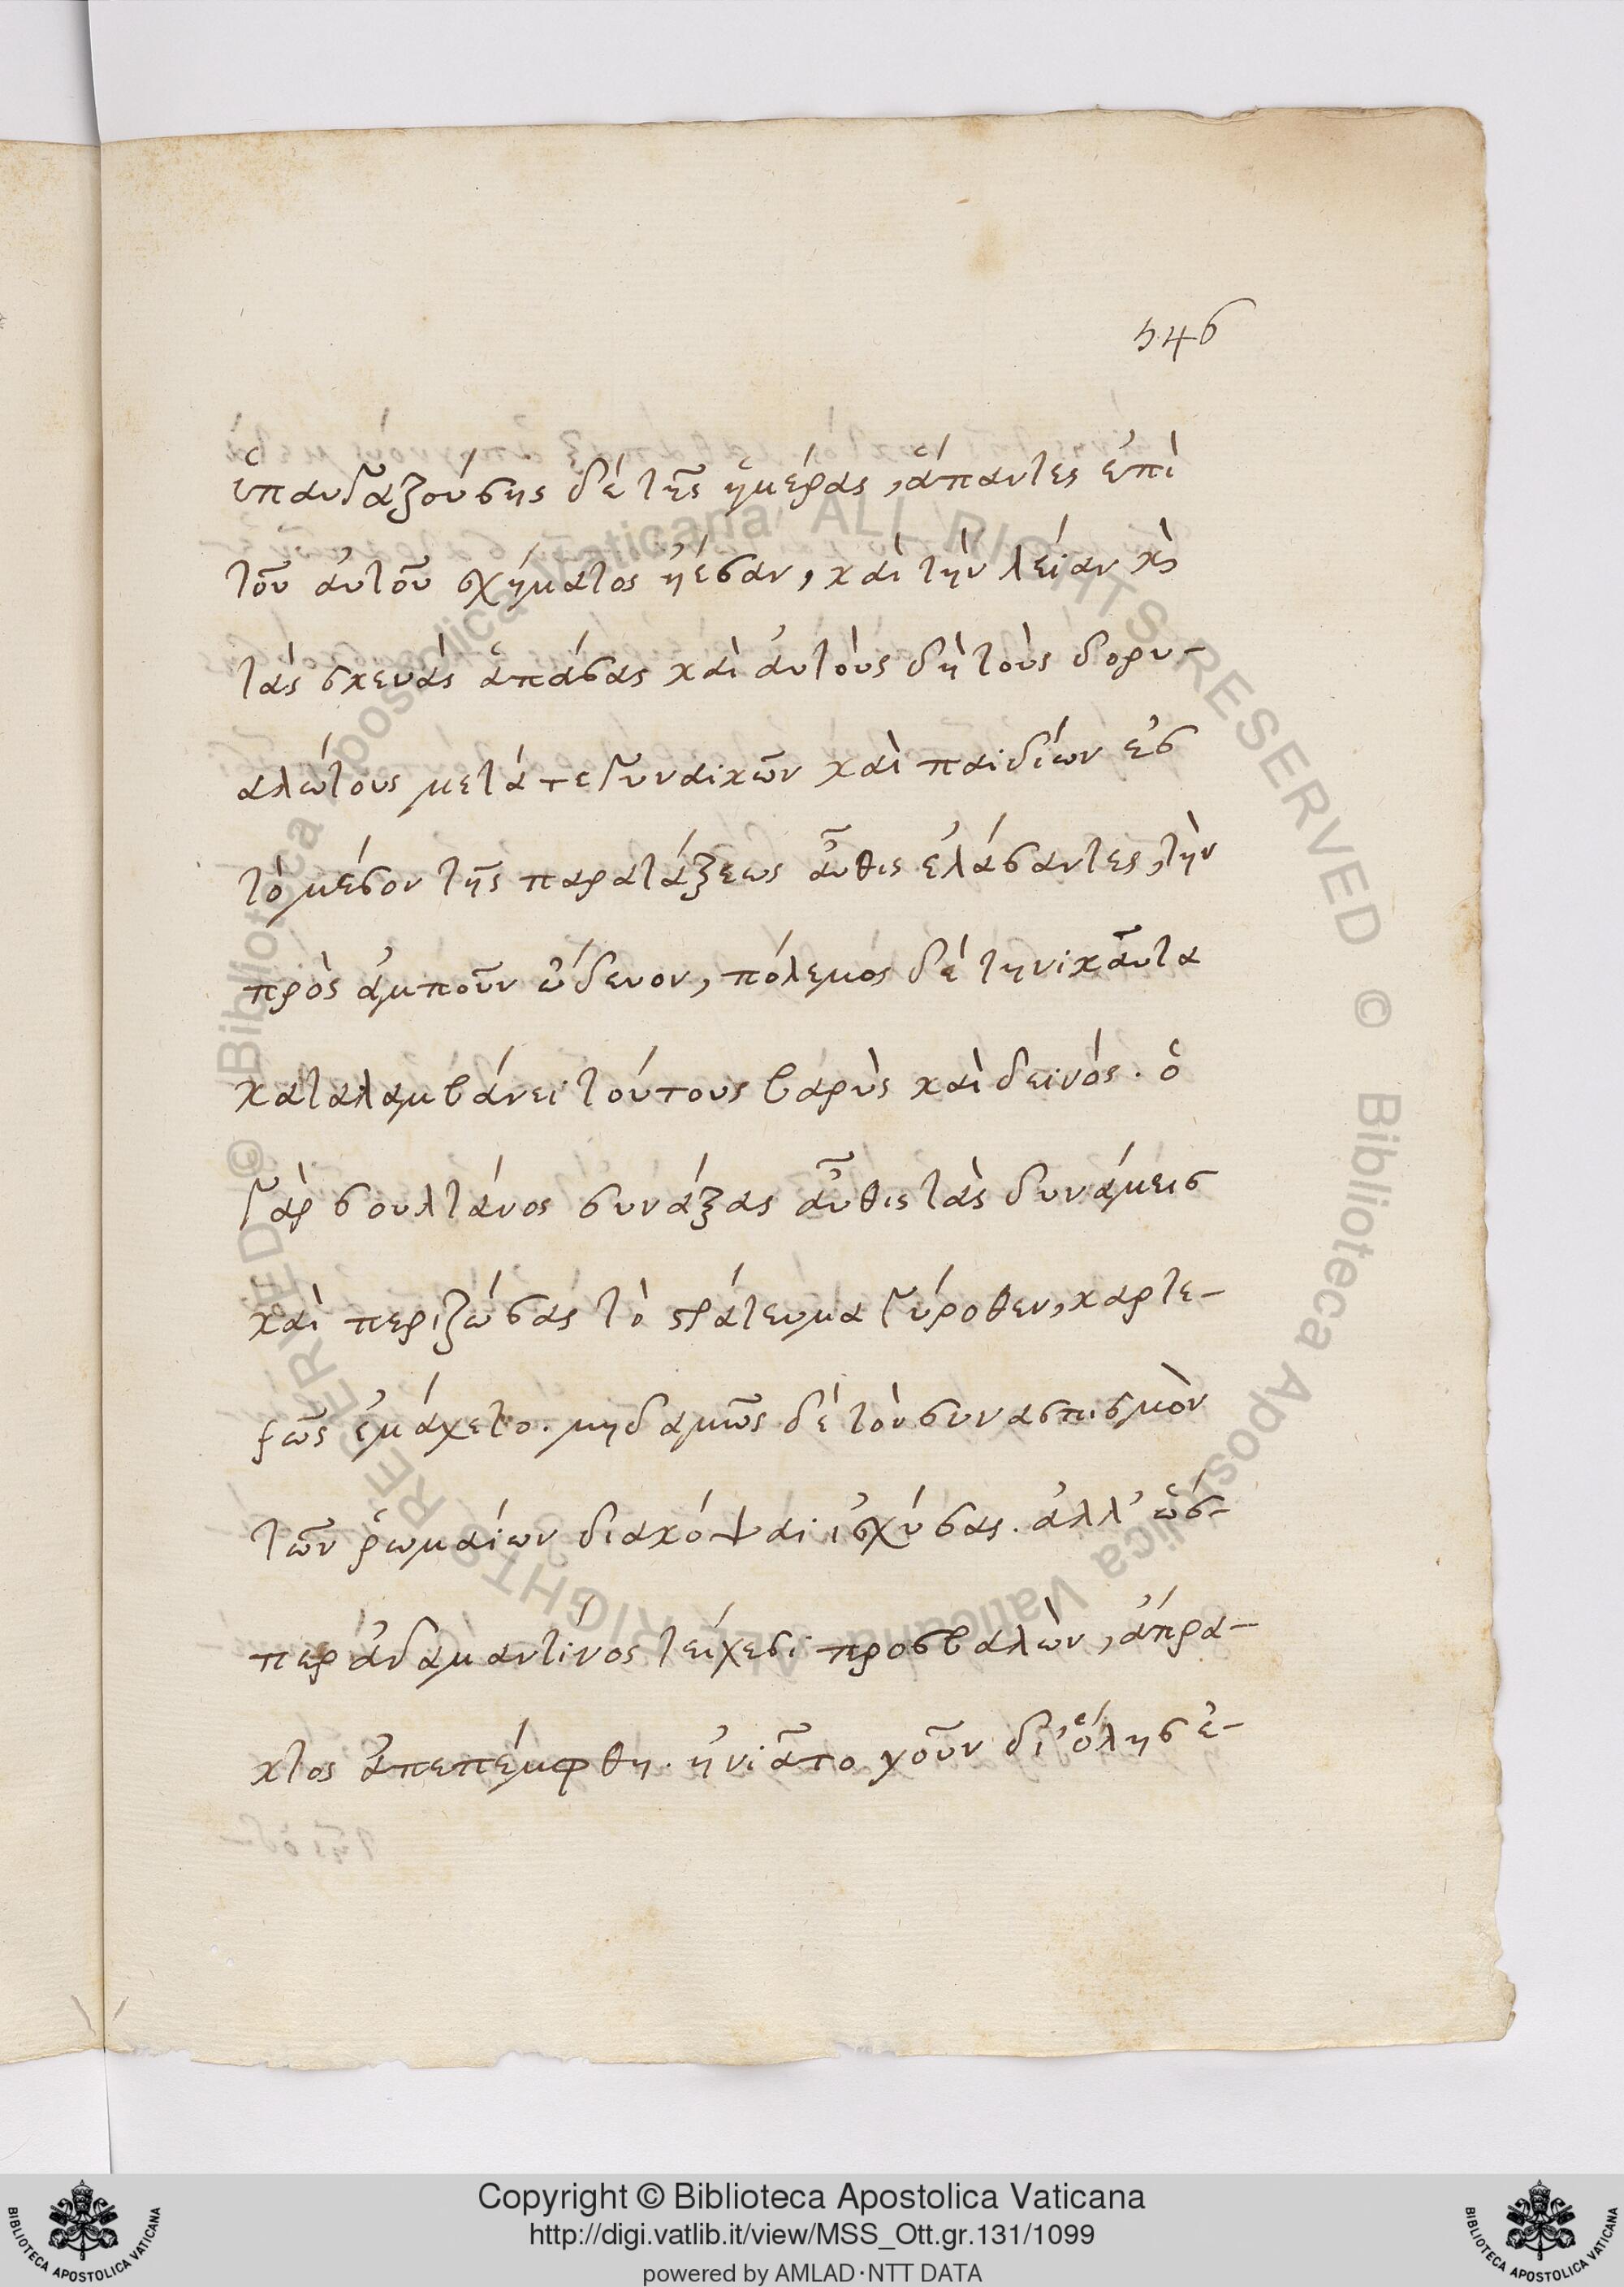 546
ὑπαυγαζούσης δὲ τῆς ἡμέρας, ἅπαντες ἐπὶ
τοῦ αὐτοῦ σχήματος ᾔεσαν, καὶ τὴν λείαν κὶ
τὰς σκευὰς ἁπάσας καὶ αὐτοὺς δὴ τοὺς δορυ-
αλώτους μετά τε γυναικῶν καὶ παιδίων εἰς
τὸ μέσον τῆς παρατάξεως αὖθις ἐλάσαντες, τὴν
πρὸς ἀμποῦν ὥδευον, πόλεμος δὲ τηνικαῦτα
καταλαμβάνει τούτους βαρὺς καὶ δεινός. ὁ
γὰρ σουλτάνος συνάξας αὖθις τὰς δυνάμεις
καὶ περιζώσας τὸ στράτευμα γύροθεν, καρτε-
ρῶς ἐμάχετο. μηδαμῶς δὲ τὸν συνασπισμὸν
τῶν ῥωμαίων διακόψαι ἰσχύσας. ἀλλ' ὥσ-
περ ἀδαμαντίνος τείχεσι προσβαλὼν, ἄπρα-
κτος ἀπεπέμφθη. ἠνιᾶτο γοῦν δι' ὅλης ἐ-
Copyright © Biblioteca Apostolica Vaticana
http://digi.vatlib.it/view/MSS_Ott.gr.131/1099
powered by AMLAD·NTT DATA
BIBLIOTECA APOSTOLICA VATICANA
BIBLIOTECA APOSTOLICA VATICANA
© Biblioteca Apostolica Vaticana ALL RIGHTS RESERVED © Biblioteca Apostolica Vaticana ALL RIGHTS RESERVED